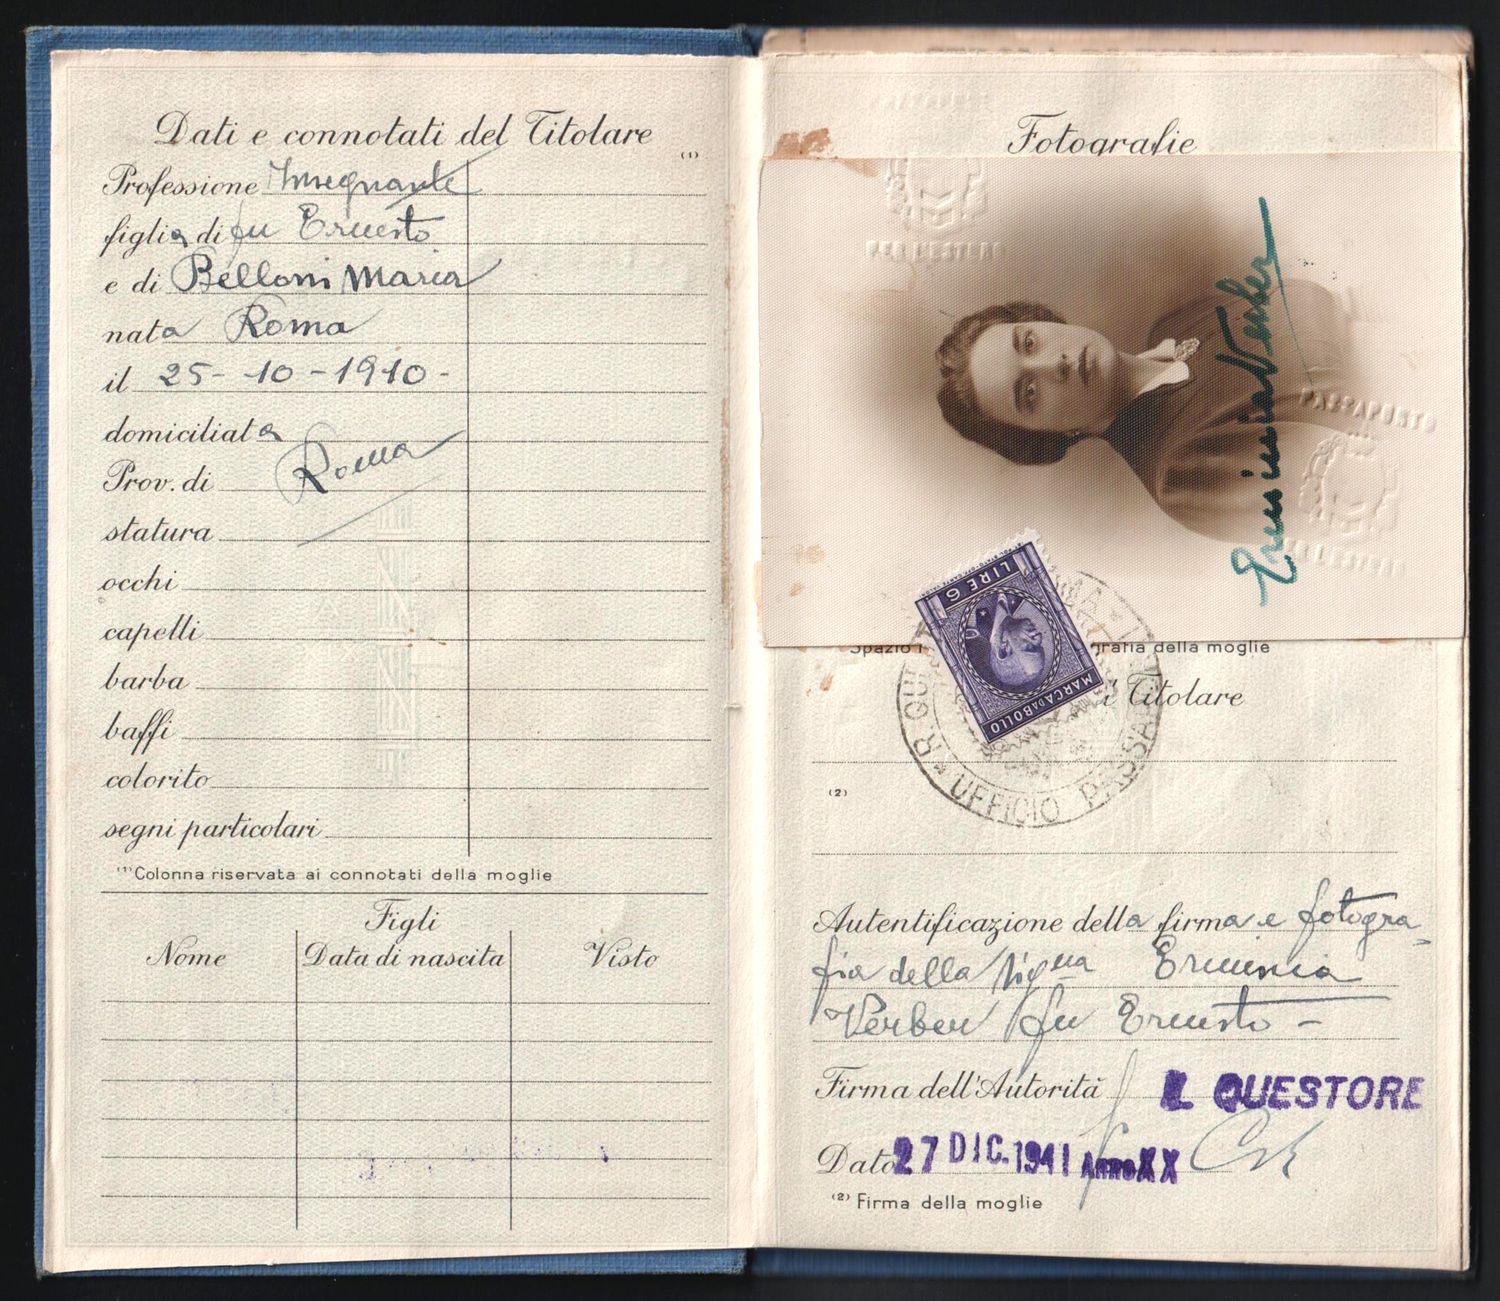 Dati e connotati del Titolare
(1)
Professione Insegnante
figlia di fu Ernesto
e di Belloni Maria
nata Roma
il 25-10-1910-
domiciliata
Prov. di Roma
statura
occhi
capelli
barba
baffi
colorito
segni particolari
(1) Colonna riservata ai connotati della moglie
Figli
Nome Data di nascita Visto
Fotografie
PER L'ESTERO
PASSAPORTO
PER L'ESTERO
Erminia Verber
LIRE 6
MARCA DA BOLLO
della moglie
Titolare
UFFICIO
(2)
Autentificazione della firma e fotogra-
fia della Sig.na Erminia
Verber fu Ernesto -
Firma dell'Autorità IL QUESTORE
Data 27 DIC. 1941 Anno XX
(2) Firma della moglie